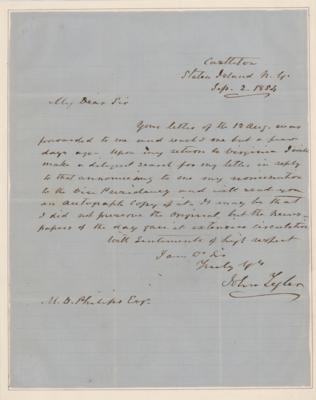 Castleton
Staten Island N.Y.
Sep. 2. 1854
My Dear Sir
Your letter of the 12 Aug. was
forwarded to me and reach'd me but a few
days ago. Upon my return to Virginia I will
make a diligent search for my letter in reply
to that announcing to me my nomination
to the Vice Presidency and will send you
an autograph copy of it. It may be that
I did not preserve the original, but the News-
papers of the day gave it extensive circulation
With Sentiments of high respect
I am Dr Sir
Truly Yrs
John Tyler
M. D. Philips Esq.